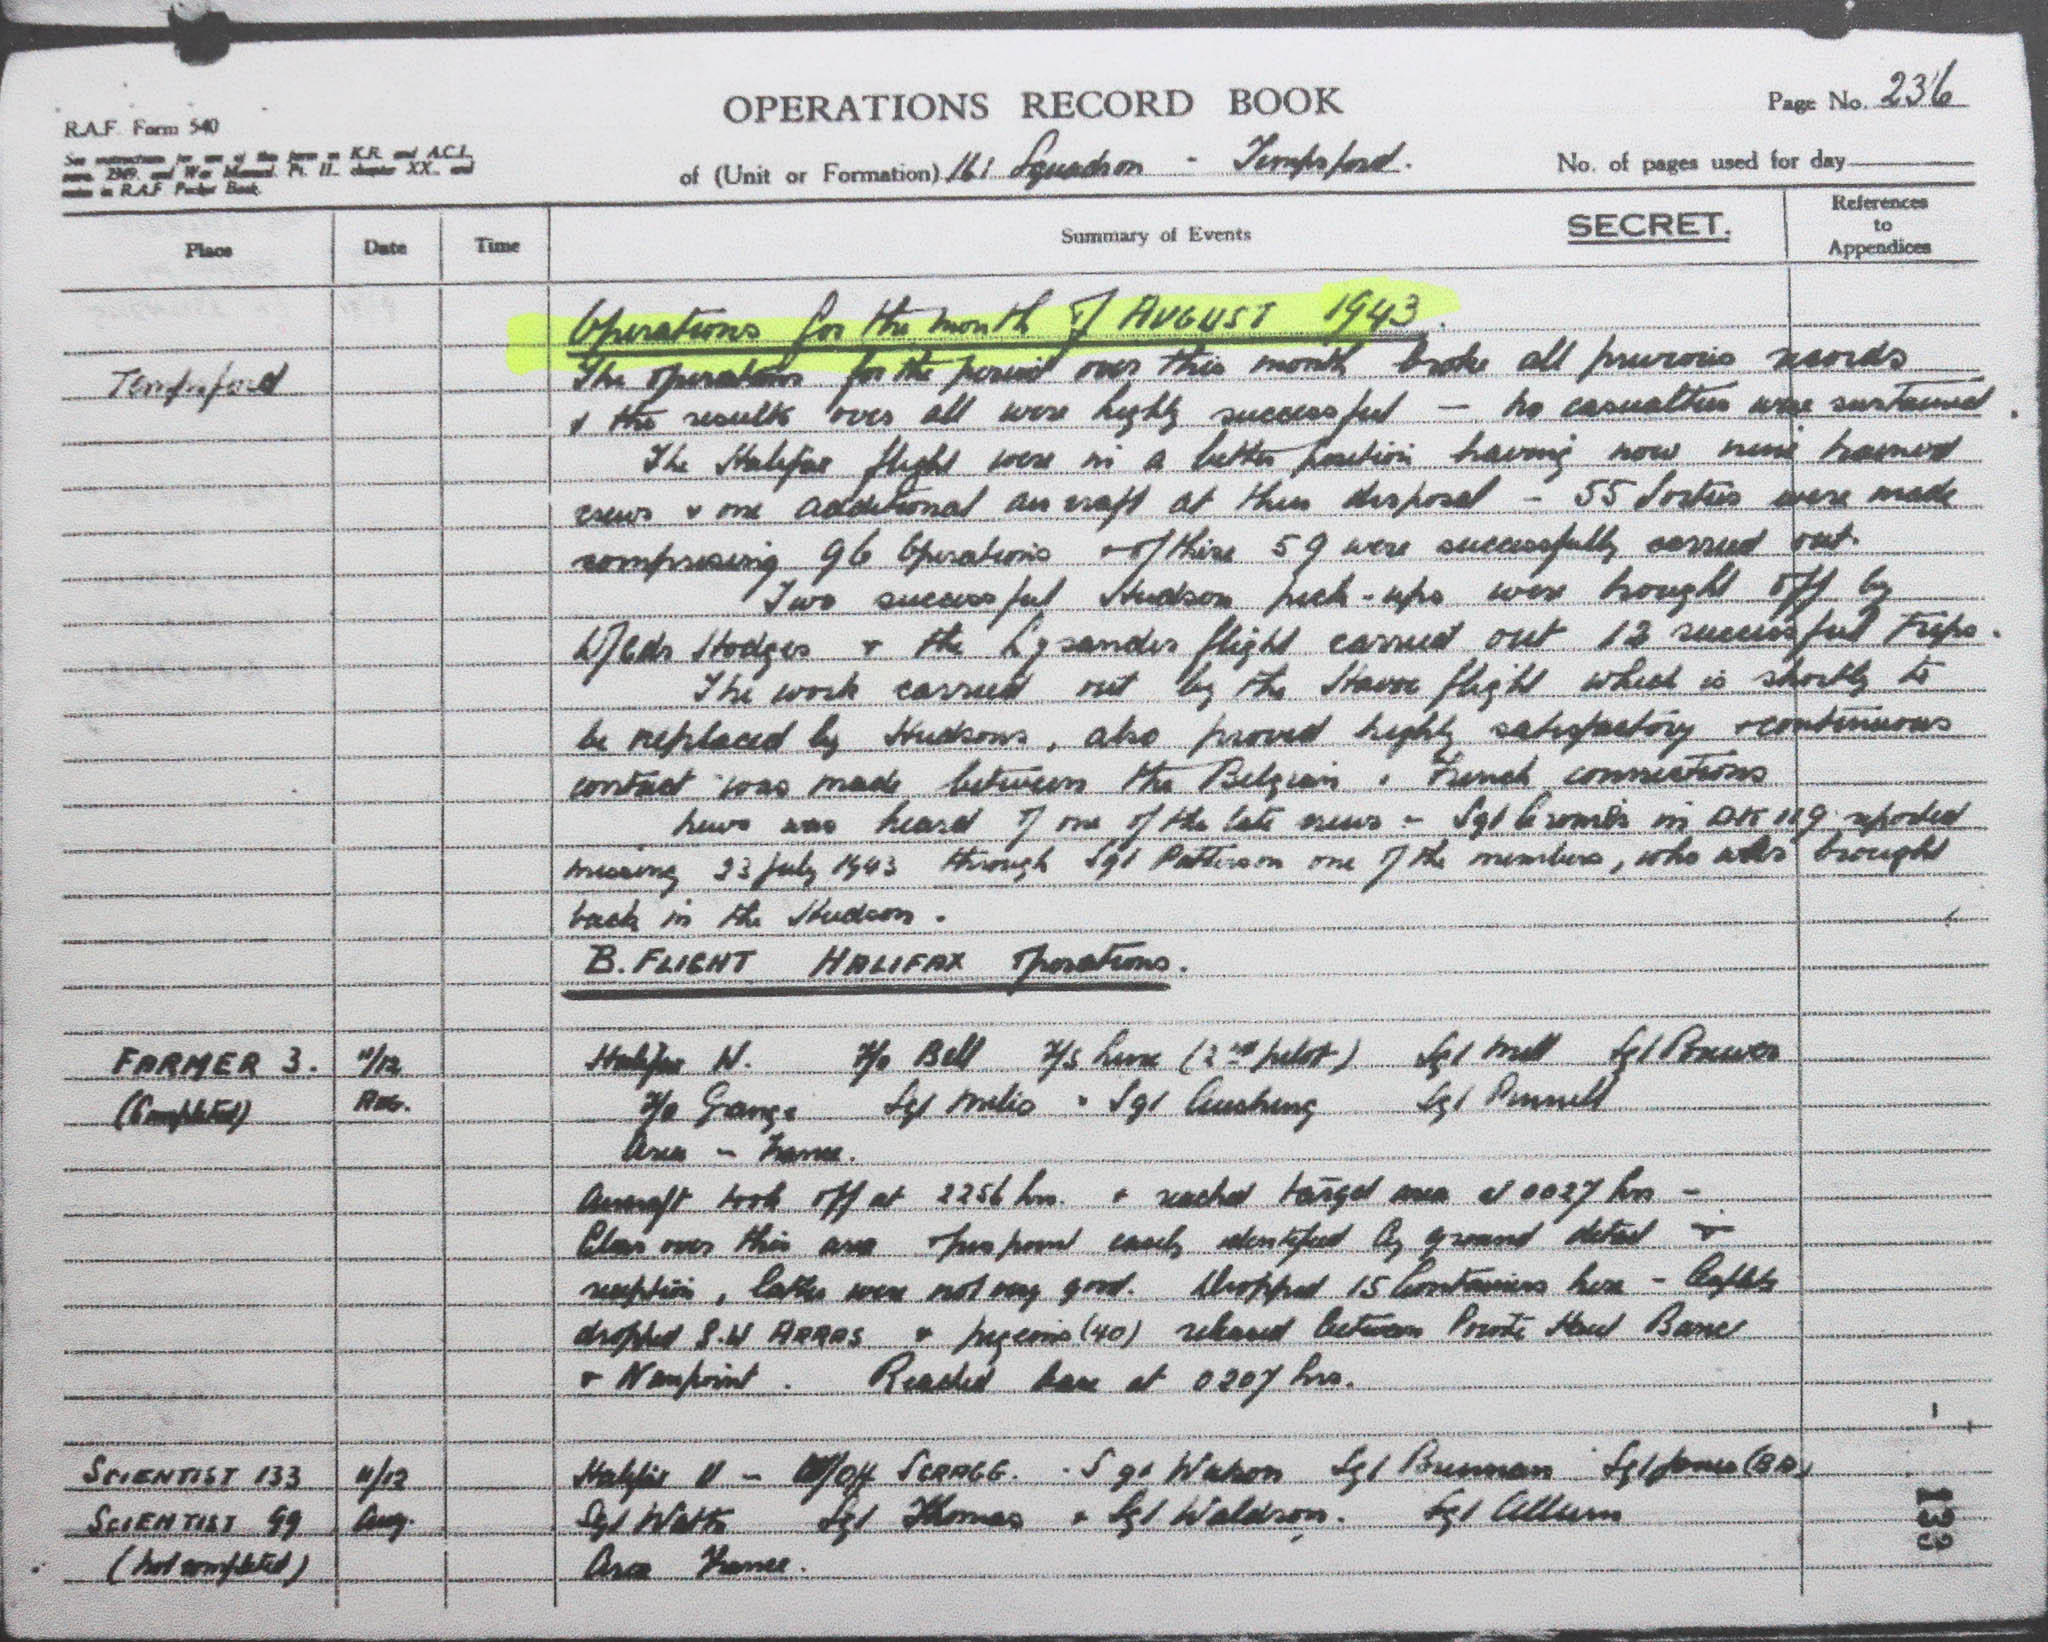 OPERATIONS RECORD BOOK
Page No. 236
R.A.F. Form 540
See instructions for use of this form in K.R. and A.C.I.,
para. 2349, and War Manual, Pt. II., chapter XX., and
notes in R.A.F. Pocket Book.
of (Unit or Formation) 161 Squadron - Tempsford.
No. of pages used for day
Place Date Time Summary of Events SECRET. References to Appendices
Operations for the month of AUGUST 1943.
Tempsford The operations for the period over this month broke all previous records
& the results over all were highly successful - no casualties were sustained.
The Halifax flight were in a better position having now nine trained
crews & one additional aircraft at their disposal - 55 Sorties were made
comprising 96 Operations & of these 59 were successfully carried out.
Two successful Hudson pick-ups were brought off by
W/Cdr Hodges & the Lysander flight carried out 12 successful trips.
The work carried out by the Havoc flight which is shortly to
be replaced by Hudsons, also proved highly satisfactory & continuous
contact was made between the Belgian & French connections
News was heard of one of the late crews - Sgt in reported
missing 23 July 1943 through Sgt Patterson one of the members, who was brought
back in the Hudson.
B. FLIGHT HALIFAX Operations.
FARMER 3. 11/12 Halifax W. F/O Bell F/S (2nd pilot) Sgt Sgt
(Completed) AUG. F/O Grange Sgt & Sgt Cushing Sgt Pinnell
Area - France.
Aircraft took off at 2256 hrs. & reached target area at 0027 hrs -
Clear over this area & pinpoint easily identified by ground detail &
reception, latter were not very good. Dropped 15 Containers here - leaflets
dropped S.W ARRAS & pigeons (40) released between Pointe Haut Banc
& . Reached base at 0207 hrs.
SCIENTIST 133 11/12 Halifax - W/Off SCRAGG. Sgt Watson Sgt Brennan Sgt Jones (BA)
SCIENTIST 99 Aug. Sgt Watts Sgt Thomas & Sgt Waldson. Sgt Allum
(not completed) Area France.
133